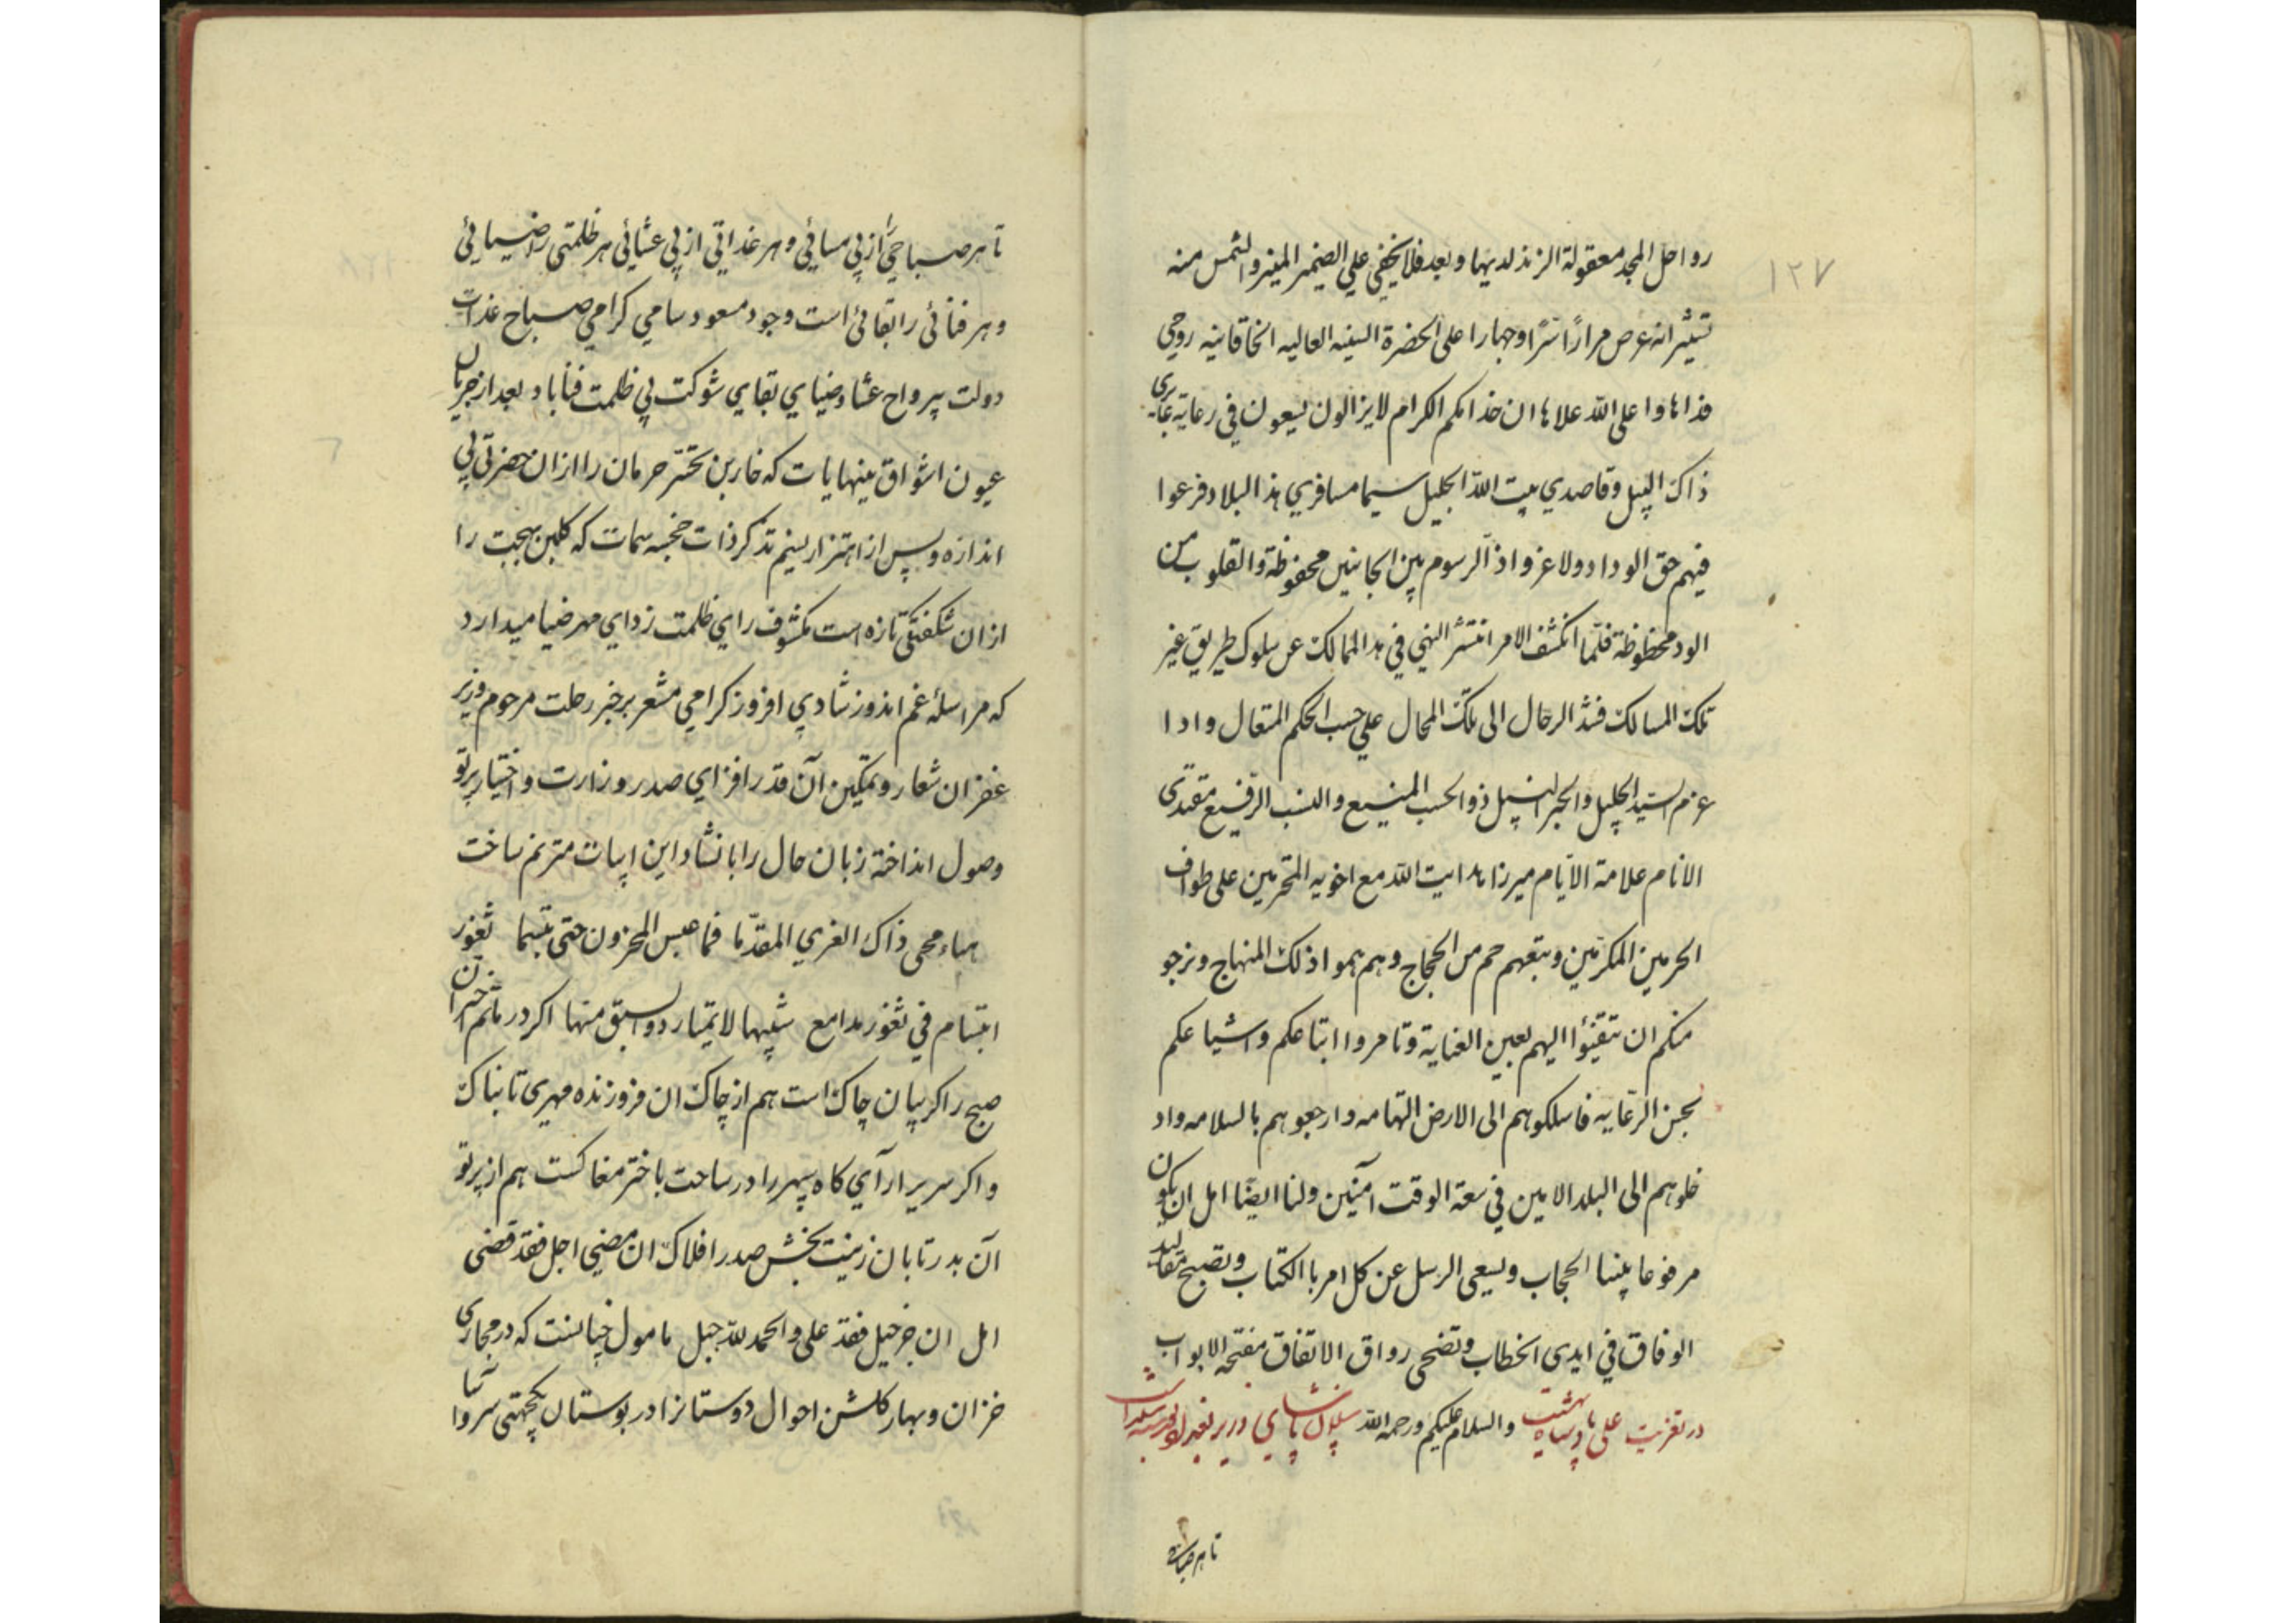 ۱۲۷
رواحل المجد معقولة الزند لدیها وبعد فلا یخفی علی الضمیر المنیر والشمس منه
تستنیر انه عرض مرارًا سرًا وجهارا علی الحضرة السنیه العالیه الخاقانیه روحی
فداها واعلی الله علاها ان خدامکم الکرام لایزالون یسعون فی رعایة عابری
ذاک السبیل وقاصدی بیت الله الجلیل سیما مسافری هذا البلاد فرعوا
فیهم حق الوداد ولا غرو اذ الرسوم بین الجانبین محفوظة والقلوب من
الود محظوظة فلما انکشف الامر انتشر النهی فی هذ الممالک عن سلوک طریق غیر
تلک المسالک فشد الرحال الی تلک المحال علی حسب الحکم المتعال واذا
عزم السید الجلیل والحبر النبیل ذو الحسب المنیع والنسب الرفیع مقتدی
الانام علامة الایام میرزا هدایت الله مع اخویه المحرمین علی طواف
الحرمین المکرمین وتبعهم جم من الحجاج وهم هموا ذلک المنهاج ونرجو
منکم ان تتفیئوا الیهم بعین العنایة وتامروا اتباعکم واشیاعکم
بحسن الرعایه فاسلکوهم الی الارض التهامه وارجعوهم بالسلامه واد
خلوهم الی البلد الامین فی سعة الوقت آمنین ولنا ایضًا امل ان یکون
مرفوعا بیننا الحجاب ویسعی الرسل عن کل امر باالکتاب وتصبح مقالید
الوفاق فی ایدی الخطاب وتضحی رواق الاتفاق مفتحه الابواب
در تعزیت علی پادشاه والسلام علیکم ورحمه الله پاشای وزیر بغداد
تا هر صباحی
تا هر صباحی را از پی مسائی وهر غداتی از پی عشائی هر ظلمتی را ضیائی
وهر فنائی را بقائی است وجود مسعود سامی کرامی صباح غذات
دولت پیرواح عشا وضیای بقای شوکت بی ظلمت فنا باد بعد از جریان
عیون اشواق بینهایات که خاربن تحسّر حرمان را ازان حضرتی بی
اندازه وپس از اهتزار نسیم تذکر ذات خجسه سمات که کلبن بهجت را
ازان شکفتکی تازه است مکشوف رای ظلمت زدای مهر ضیا میدارد
که مراسلهٔ غم اندوز شادی افزوز کرامی مشعر بر خبر رحلت مرحوم وزیر
غفران شعار وتمکین آن قدر افزای صدر وزارت واختیار پرتو
وصول انداخته زبان حال را بانشاد این ابیات مترنم ساخت
هناء محی ذاک العزی المقدّما فما عبس المحزون حتی تبسما ثغور
ابتسام فی ثغور مدامع شبیهان لایمتاز ذو السبق منها اکر در ماتم آن اختر
صبح را کریبان چاک است هم از چاک ان فروزنده مهری تابناک
واکر سریر ارآی کاه سپهر را در ساحت باختر مغاکست هم از پرتو
آن بدر تابان زینت بخش صدر افلاک ان مضی اجل فقد قضی
امل ان جز حبل فقد علی والحمد لله جبل مامول چنانست که در مجاری
خزان وبهار کلشن احوال دوستانرا در بوستان یکجهتی سرو آسا